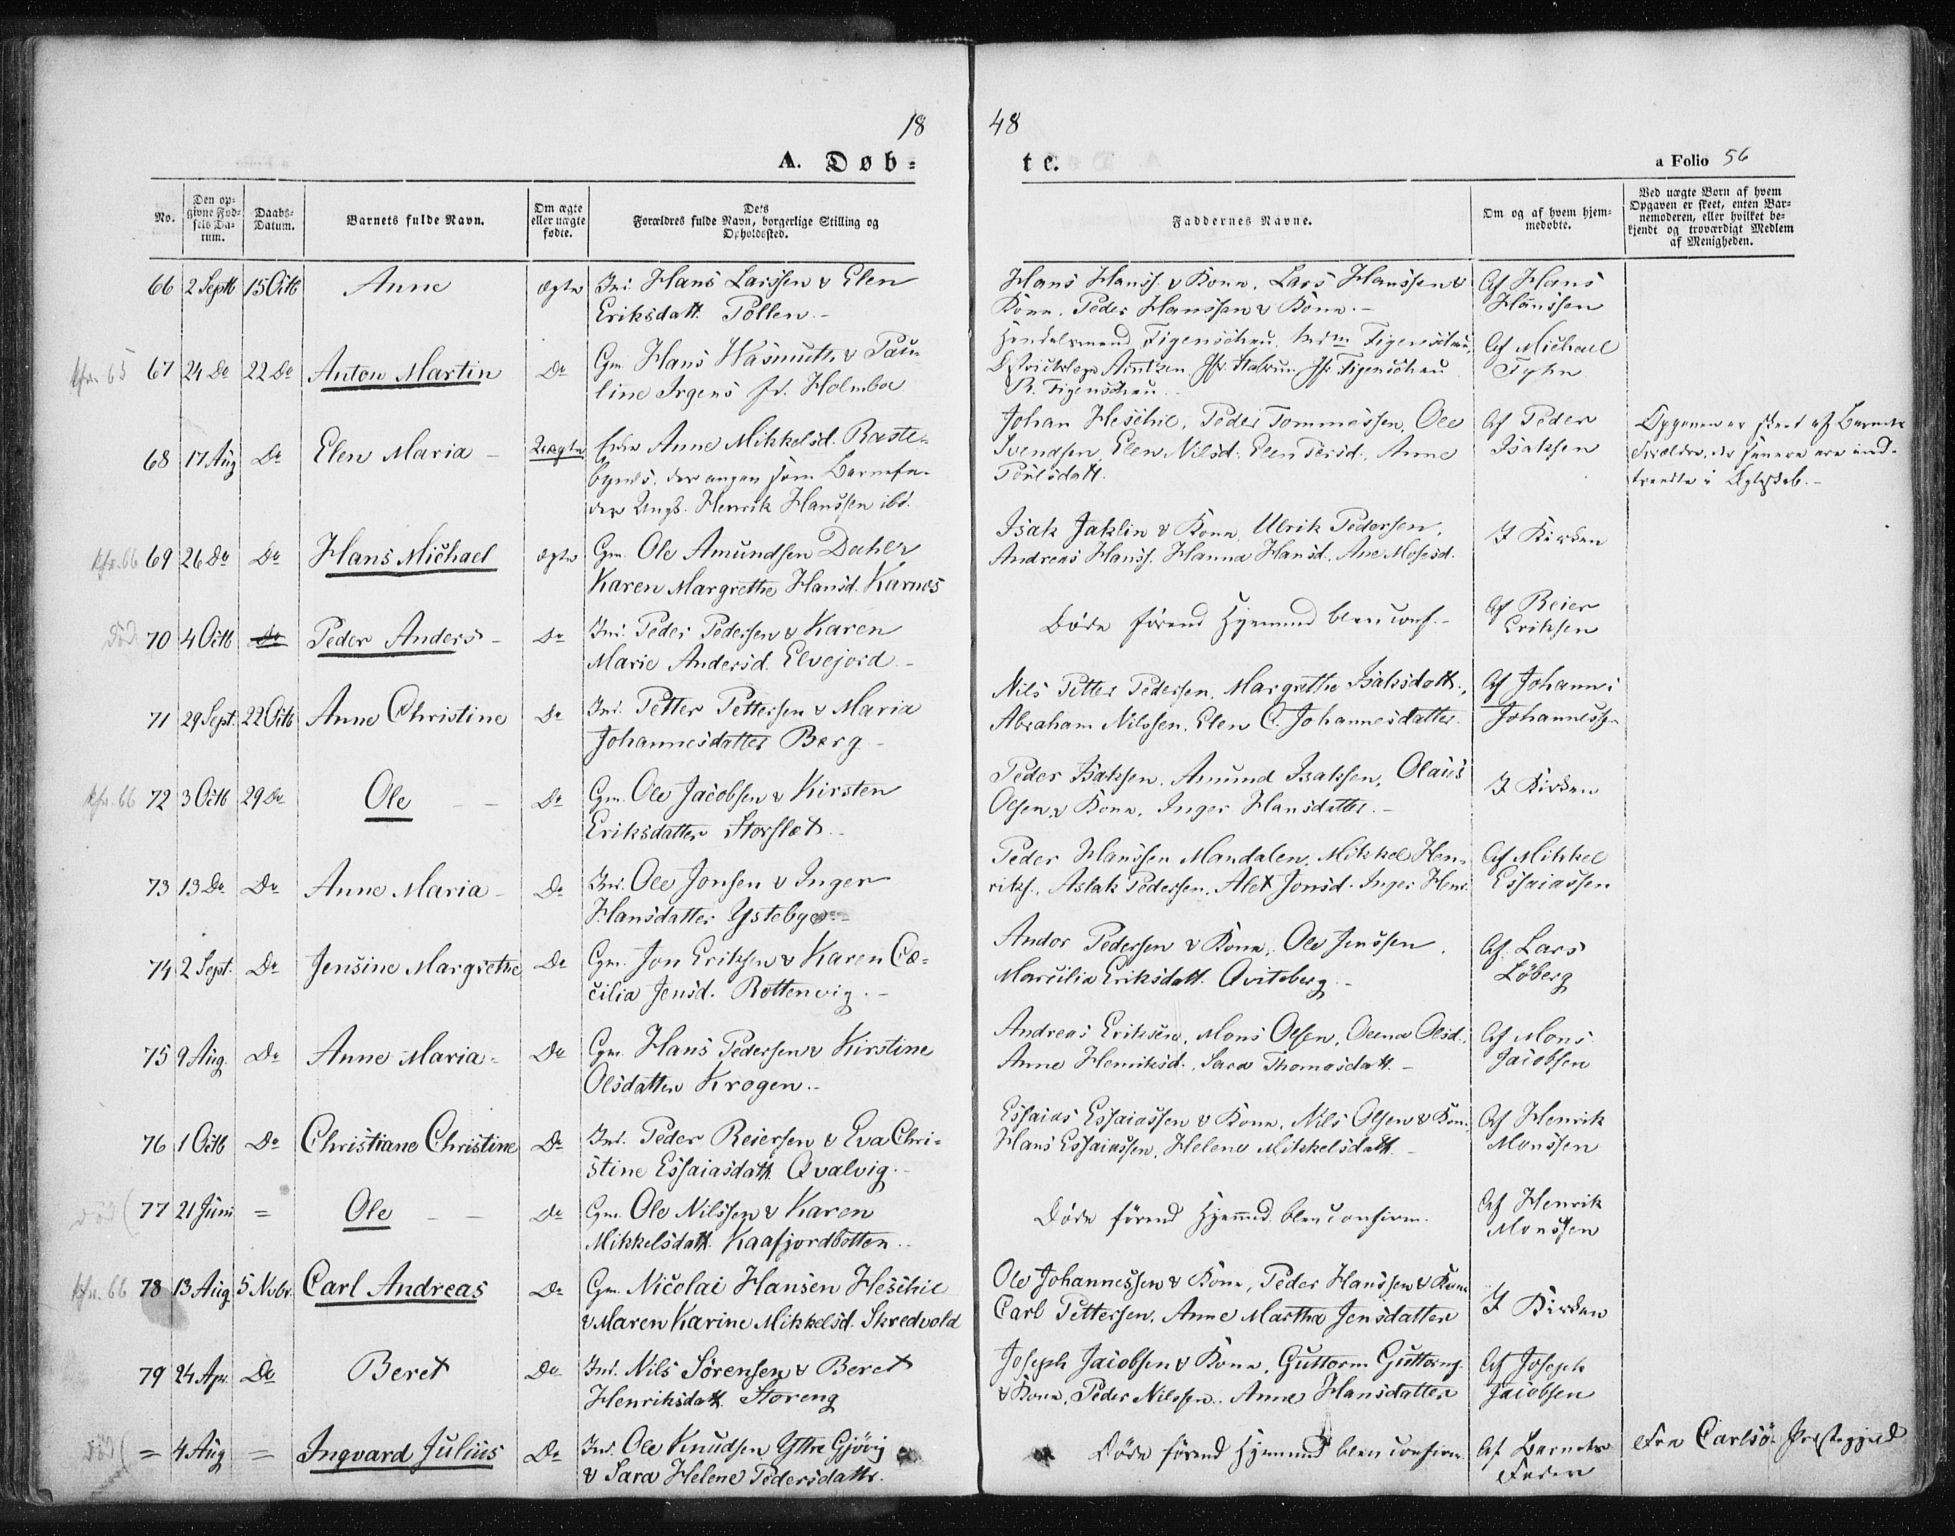 18 48
A. Døb= te.
a Folio 56
No.
Den op-
givne Fød-
sels Da-
tum.
Daabs-
Datum.
Barnets fulde Navn.
Om ægte
eller uægte
fødte.
Dets
Forældres fulde Navn, borgerlige Stilling og
Opholdssted.
Faddernes Navne.
Om og af hvem hjem-
medøbte.
Ved uægte Børn af hvem
Opgaven er skeet, enten Bar-
nemoderen, eller hvilket be-
kjendt og troværdigt Medlem
af Menigheden.
66 2 Septb 15 Octb Anne ægte Ind. Hans Larssen & Elen
Eriksdatt. Pollen.
Hans Hanss. & Kone, Lars Hanssen &
Kone, Peder Hanssen & Kone.
Af Hans
Hanssen
kfr. 65 67 24 Do 22 Do Anton Martin Do Gm. Hans Wasmuth & Pau-
line Irgens f. Holmboe
Handelsmand Figenschau, Mdm Figenschau,
Figenschau
R. Figenschau.
Af Michael
68 17 Aug Do Elen Maria Uægte Anne Mikkelsd. Raste-
bynes, der angav som Barnefa-
der Ungk. Henrik Hanssen ibd.
Johan Heschie, Peder Tommessen, Ole
Svendsen, Elen Nilsd. Elen Persd., Anne
Poulsdatt.
Af Peder
Isaksen
Opgaven er skeet af Barnets
Forældre, der senere ere ind-
traadte i Ægteskab.
kfr. 66 69 26 Do Do Hans Michael ægte Gm. Ole Amundsen Dacher
Karen Margrethe Hansd. Karnes
Isak Jaklin & Kone, Ulrik Pedersen,
Andreas Hanss. Hanna Hansd. Ane Mosesd.
I Kirken
død 70 4 Octb Do Peder Anders Do Ind. Peder Pedersen & Karen
Marie Andersd. Elvejord.
Døde førend Hjemmed blev conf.
Af Reier
Eriksen
71 29 Sept. 22 Octb Anne Christine Do Ind. Petter Pettersen & Maria
Johannesdatter Berg
Nils Petter Pedersen, Margrethe Isaksdatt.,
Abraham Nilssen, Elen C. Johannesdatter.
Af Johannes
Johannessen
kfr. 66 72 3 Octb 29 Do Ole Do Gm. Ole Jacobsen & Kirsten
Eriksdatter Storslet.
Peder Isaksen, Amund Isaksen, Olaus
Olsen & Kone, Inger Hansdatter.
I Kirken
73 13 Do Do Anne Maria Do Ind. Ole Jonsen & Inger
Hansdatter Ysteby
Peder Hanssen Mandalen, Mikkel Hen-
riks., Aslak Pedersen, Alet Jonsd. Inger Henr.
Af Mikkel
Essaiassen
74 2 Sept. Do Jensine Margrethe Do Gm. Jon Eriksen & Karen Cæ-
cilia Jensd. Rottenvig.
Andor Pedersen & Kone, Ole Jenssen,
Marcilia Eriksdatt. Qviteberg.
Af Lars
Løberg
75 9 Aug. Do Anne Maria Do Gm. Hans Pedersen & Kirstine
Olsdatter Krogen.
Andreas Eriksen, Mons Olsen, Oline Olsd.,
Anne Henriksd., Sara Thomasdatt.
Af Mons
Jacobsen
76 1 Octb Do Christiane Christine Do Ind. Peder Reiersen & Eva Chri-
stine Essaiasdatt. Qvalvig.
Essaias Essaiassen & Kone, Nils Olsen & Kone,
Hans Essaiassen, Helene Mikkelsdatt.
Af Henrik
Monssen
død ( 77 21 Juni = Ole Do Gm. Ole Nilssen & Karen
Mikkelsdatt. Kaafjordbotten.
Døde førend Hjemmed. blev confirm.
Af Henrik
Monssen
kfr. 66 78 13 Aug. 5 Nvbr. Carl Andreas Do Gm. Nicolai Hansen Heschie
& Maren Karine Mikkelsd. Skredvold
Ole Johannessen & Kone, Peder Hanssen & Kone
Carl Pettersen, Anne Martha Jensdatter
I Kirken
79 24 Apr. Do Beret Do Ind. Nils Sørensen & Beret
Henriksdatt. Storeng
Joseph Jacobsen & Kone, Guttorm Guttormss.
& Kone, Peder Nilssen, Anne Hansdatter
Af Joseph
Jacobsen
død ( = 4 Aug = Ingvard Julius Do Ind. Ole Knudsen Yttre Gjøvig
& Sara Helene Pedersdatter.
Døde førend Hjemmed blev confirm.
Af Barnets
Fader
Fra Carlsø Præstegjeld